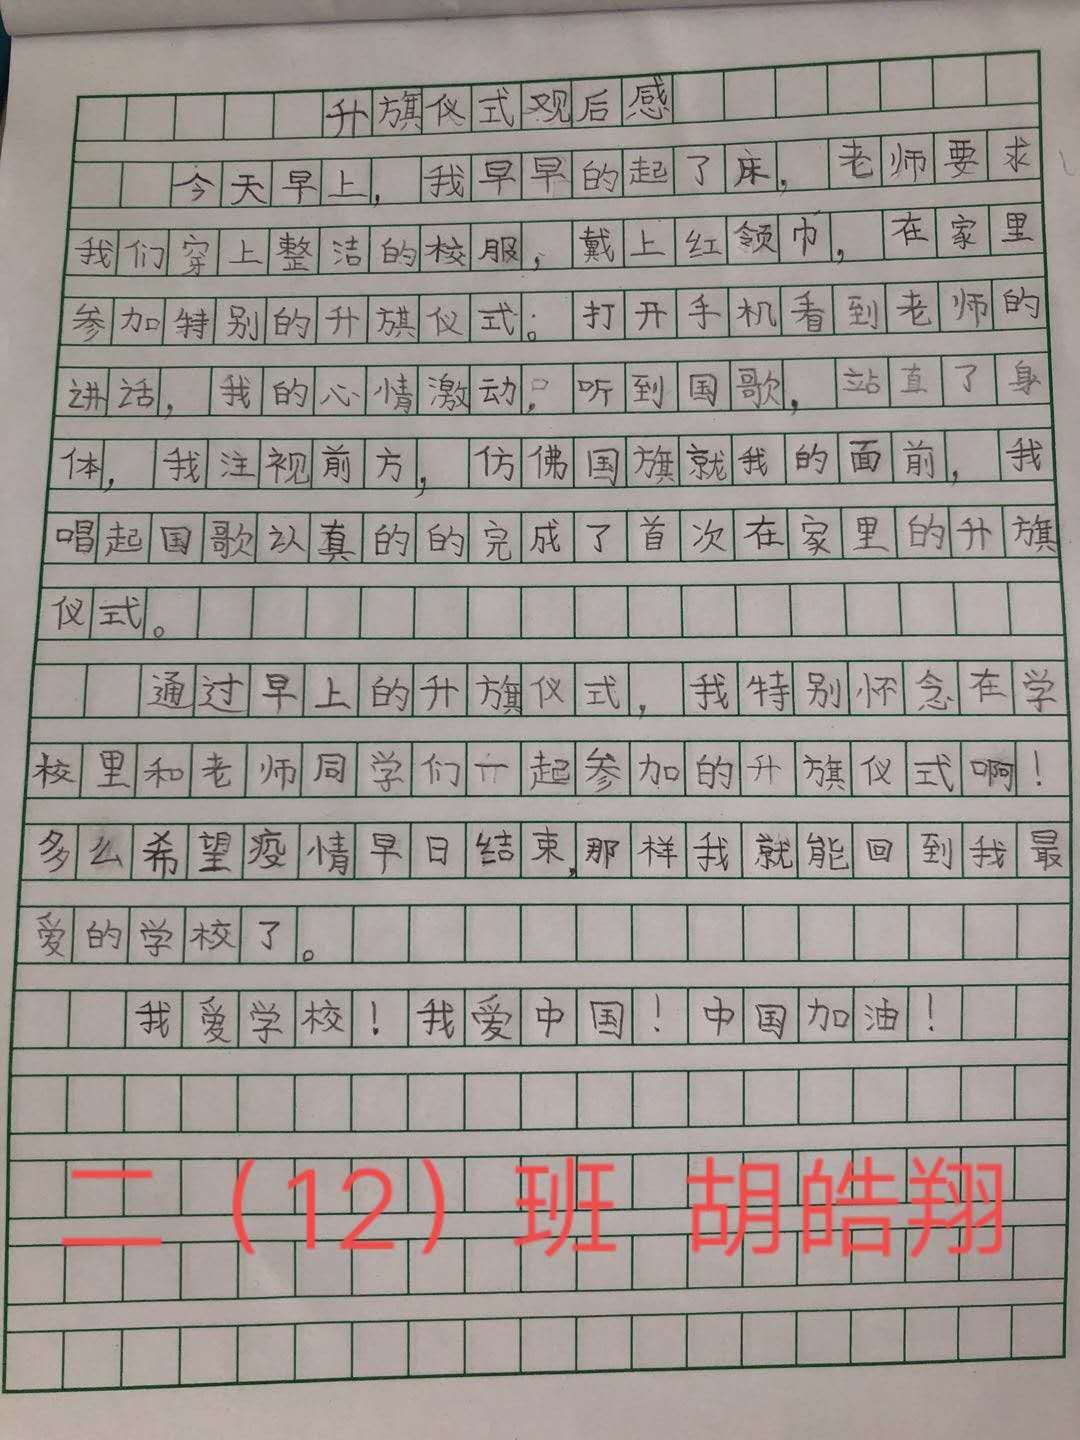 升旗仪式观后感
今天早上，我早早的起了床，老师要求
我们穿上整洁的校服，戴上红领巾，在家里
参加特别的升旗仪式。打开手机看到老师的
讲话，我的心情激动。听到国歌，站直了身
体，我注视前方，仿佛国旗就我的面前，我
唱起国歌认真的的完成了首次在家里的升旗
仪式。
通过早上的升旗仪式，我特别怀念在学
校里和老师同学们一起参加的升旗仪式啊！
多么希望疫情早日结束，那样我就能回到我最
爱的学校了。
我爱学校！我爱中国！中国加油！
二（12）班 胡皓翔